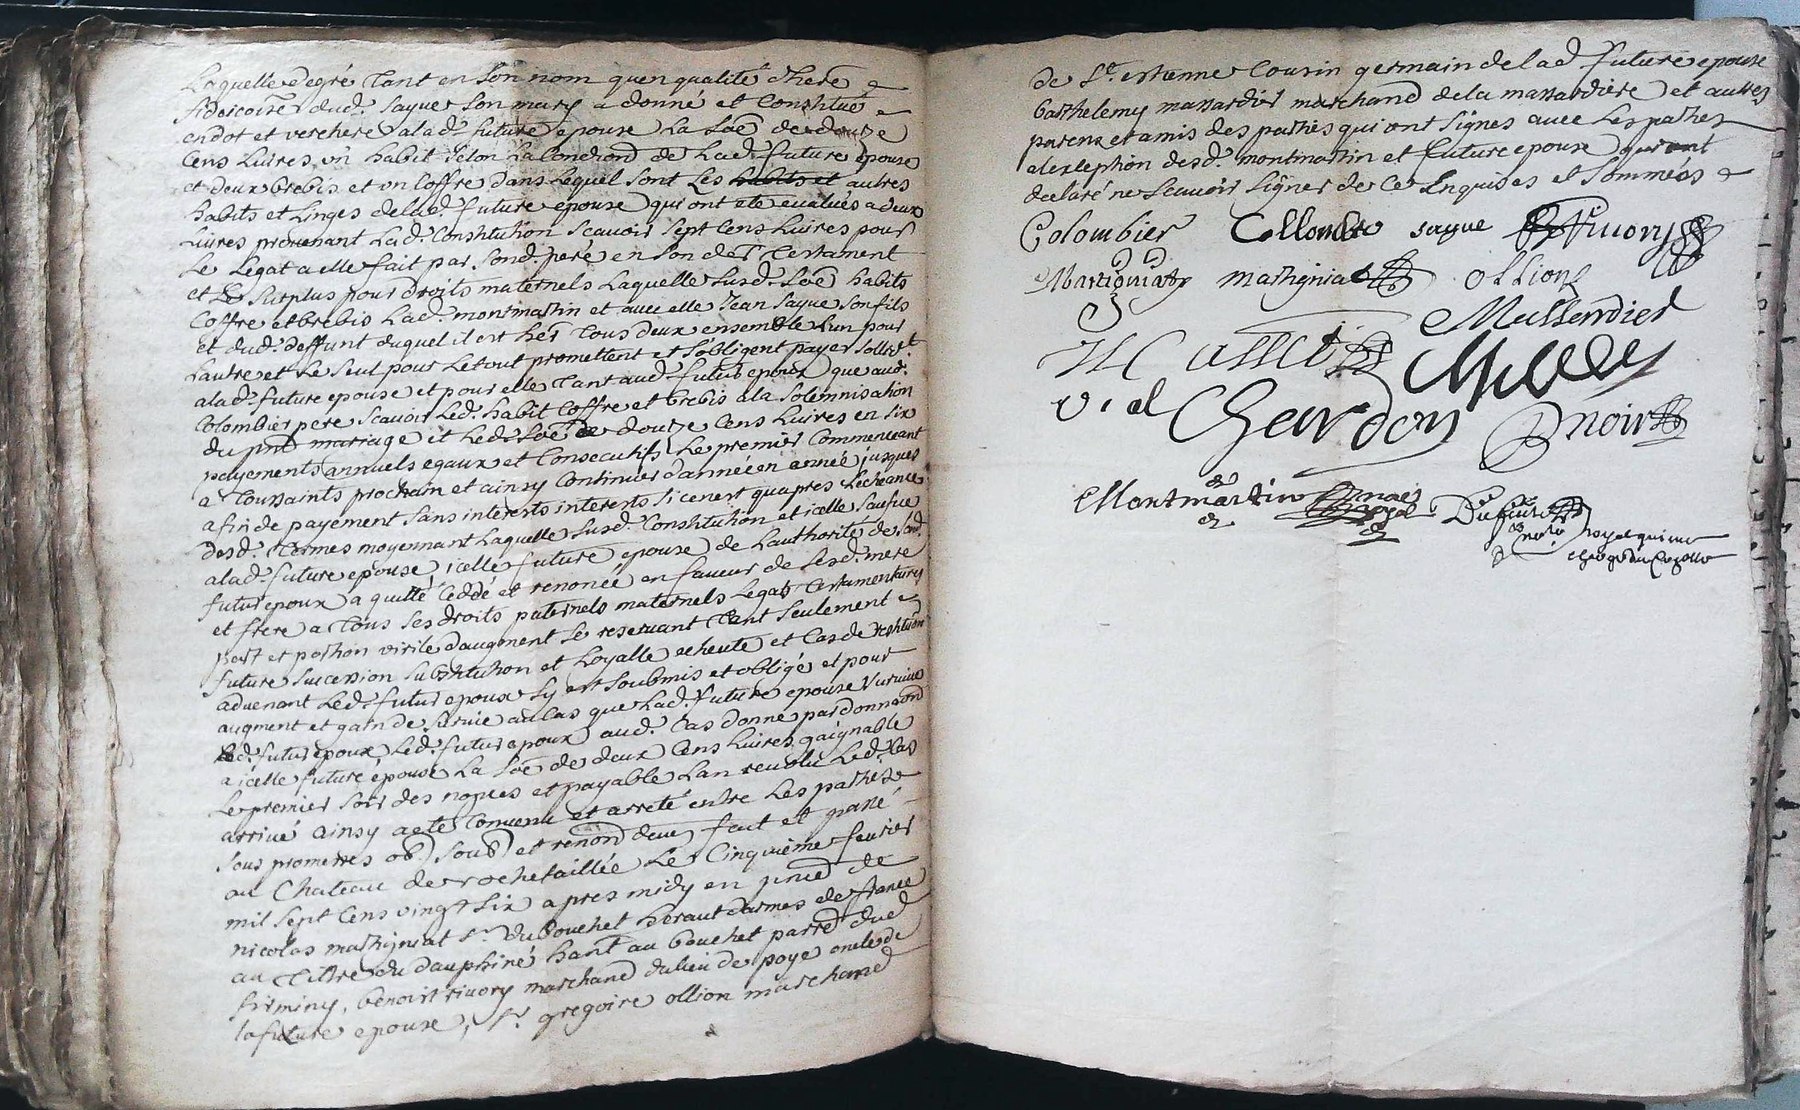 Laquelle degré tant en son nom quen qualité d'here
fideicoire dud. sayue son mary a donné et Constitué
endot et verchere alad. future epouse La soe de douze
Cens Livres, un habit selon La Condition de Lad. future epouse
et deux brebis et un Coffre dans Lequel sont Les habits et autres
habits et Linges delad. future epouse qui ont ete evalués a deux
Livres provenant Lad. Constitution scauoir sept Cens Livres pour
Le Legat a elle fait par sond. pere en son der testament
et Le surplus pour droits maternels Laquelle susd. soe habits
Coffre et brebis Lad. montmartin et avec elle Jean sayue son fils
et dud. deffunt duquel il est her tous deux ensemble Lun pour
Lautre et Le seul pour Letout promettent et s'obligent payer sollidt
alad. future epouse et pour elle tant aud. futur epoux que aud.
Colombier pere scauoir Led. habit Coffre et brebis ala solemnisation
du pnt marriage et Lad. soe de douze Cens Livres en six
payements annuels egaux et Consecutifs Le premier Commenceant
a toussaints prochain et ainsy Continuer d'année en année jusques
afin de payement sans interests interests si cenest quapres Lecheance
desd. termes moyennant Laquelle susd. Constitution et icelle sauſue
alad. future epouse, icelle future epouse de Lauthorité de sond.
futur epoux a quitté Ceddé et renoncé en faveur de sesd. mere
et frere a tous ses droits paternels maternels Legats testamentaires
part et portion virile d'augment se reservant tant seulement
future succession substitution et Loyalle echeute et Cas de restitution
advenant Led. futur epoux sy est soubmis et obligé et pour
augment et gain de survie au Cas que Lad. future epouse survive
Led. futur epoux, Led. futur epoux aud. Cas donne par donnaon
a icelle future epouse La soe de deux Cens Livres gaignable
Le premier soir des nopces et payable Lan revolu Led. Cas
arrivé ainsy a eté Convenu et arreté entre Les parties
sous promesses ob) soub) et renond deue fait et passé
au Chateau de rochetaillée Le Cinquieme fevrier
mil sept Cens vingt six apres midy en pnce de
nicolas martigniat sr. du bouchet heraut d'armes de france
au titre du dauphiné hant au bouchet parr dud
firminy, benoist rivory marchand du lieu de poye oncle de
la future epouse, sr. gregoire ollion marchand
de St. estienne Cousin germain delad. future epouse
barthelemy massardier marchand dela massardiere et autres
parens et amis des parties qui ont signes avec Les parties
alexception desd. montmartin et future epouse qui ont
declaré ne scauoir signer de Ce Enquises et sommées
Colombier Collombe sayue Rivory
Martigniat martigniat ollion
Massardier
vial Cheardon noir
Montmartin